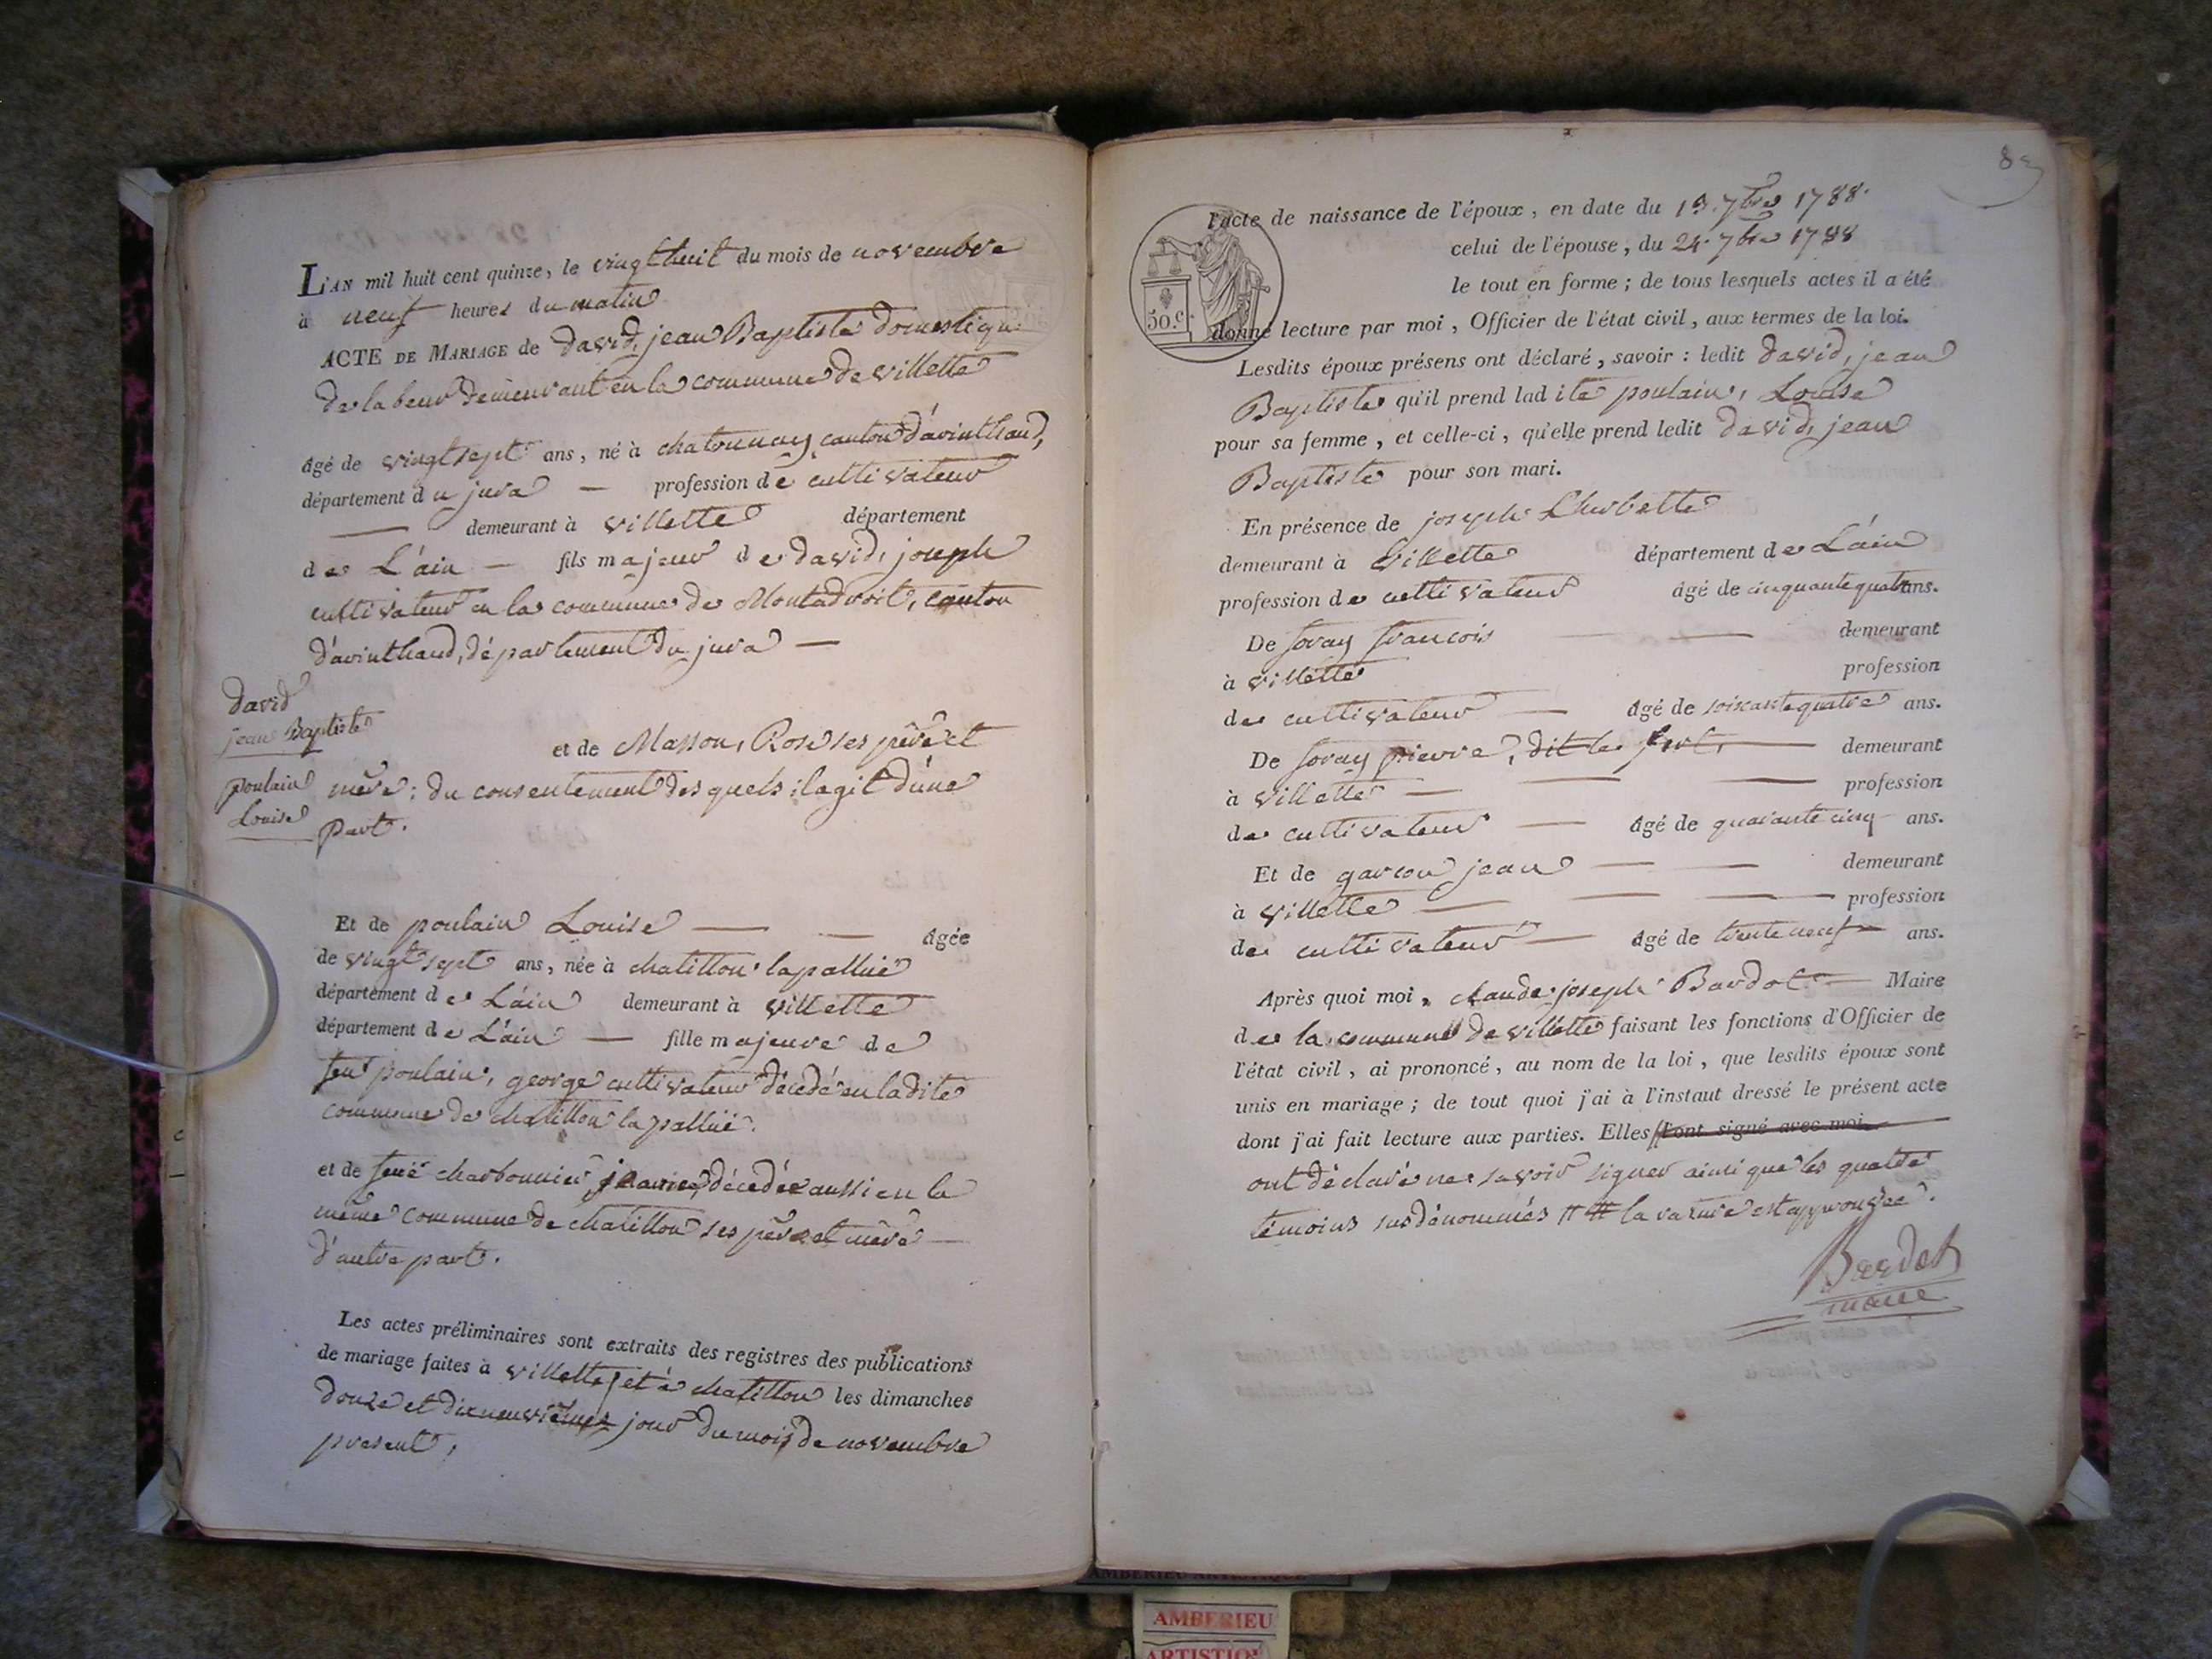 L'AN mil huit cent quinze, le vingt huit du mois de novembre
à neuf heures du matin
ACTE DE MARIAGE de david, jean Baptiste domestique
de labeur demeurant en la commune de villette
âgé de vingt sept ans, né à chatonnay, canton d'arinthaud,
département du jura — profession de cultivateur
— demeurant à villette département
de L'ain — fils majeur de david, joseph
cultivateur en la commune de Montadroit, canton
d'arinthaud, département du jura —
david
jean Baptiste
poulain
Louise
et de Masson, Rose ses père et
mère : du consentement desquels il agit d'une
part.
Et de poulain Louise — — âgée
de vingt sept ans, née à chatillon lapallüe
département de L'ain demeurant à villette
département de L'ain — fille majeure de
feu poulain, george cultivateur décédé en ladite
commune de chatillon la pallüe.
et de feue charbonnier, décédée aussi en la
même commune de chatillon ses père et mère —
d'autre part.
Les actes préliminaires sont extraits des registres des publications
de mariage faites à villette et à chatillon les dimanches
douze et dix neuvième jour du mois de novembre
present,
8
l'acte de naissance de l'époux, en date du 13. 7bre 1788.
celui de l'épouse, du 24. 7bre 1788
le tout en forme ; de tous lesquels actes il a été
50.c
donné lecture par moi, Officier de l'état civil, aux termes de la loi.
Lesdits époux présens ont déclaré, savoir : ledit david, jean
Baptiste qu'il prend ladite poulain, Louise
pour sa femme, et celle-ci, qu'elle prend ledit david, jean
Baptiste pour son mari.
En présence de joseph Lherbette
demeurant à villette département de L'ain
profession de cultivateur âgé de cinquante quatre ans.
De foray francois — — demeurant
à villette profession
de cultivateur — âgé de soixante quatre ans.
De foray pierre, dit le — demeurant
à villette — — — profession
de cultivateur — âgé de quarante cinq ans.
Et de garcon jean — — demeurant
à villette — — — profession
de cultivateur — âgé de trente neuf ans.
Après quoi moi, claude joseph Bardot — Maire
de la commune de villette faisant les fonctions d'Officier de
l'état civil, ai prononcé, au nom de la loi, que lesdits époux sont
unis en mariage ; de tout quoi j'ai à l'instant dressé le présent acte
dont j'ai fait lecture aux parties. Elles l'ont signé avec moi
ont déclaré ne savoir signer ainsi que les quatre
témoins susdénommés la rature est approuvée.
Bardot
maire
AMBERIEU ARTISTIQUE
AMBERIEU
ARTISTIQ